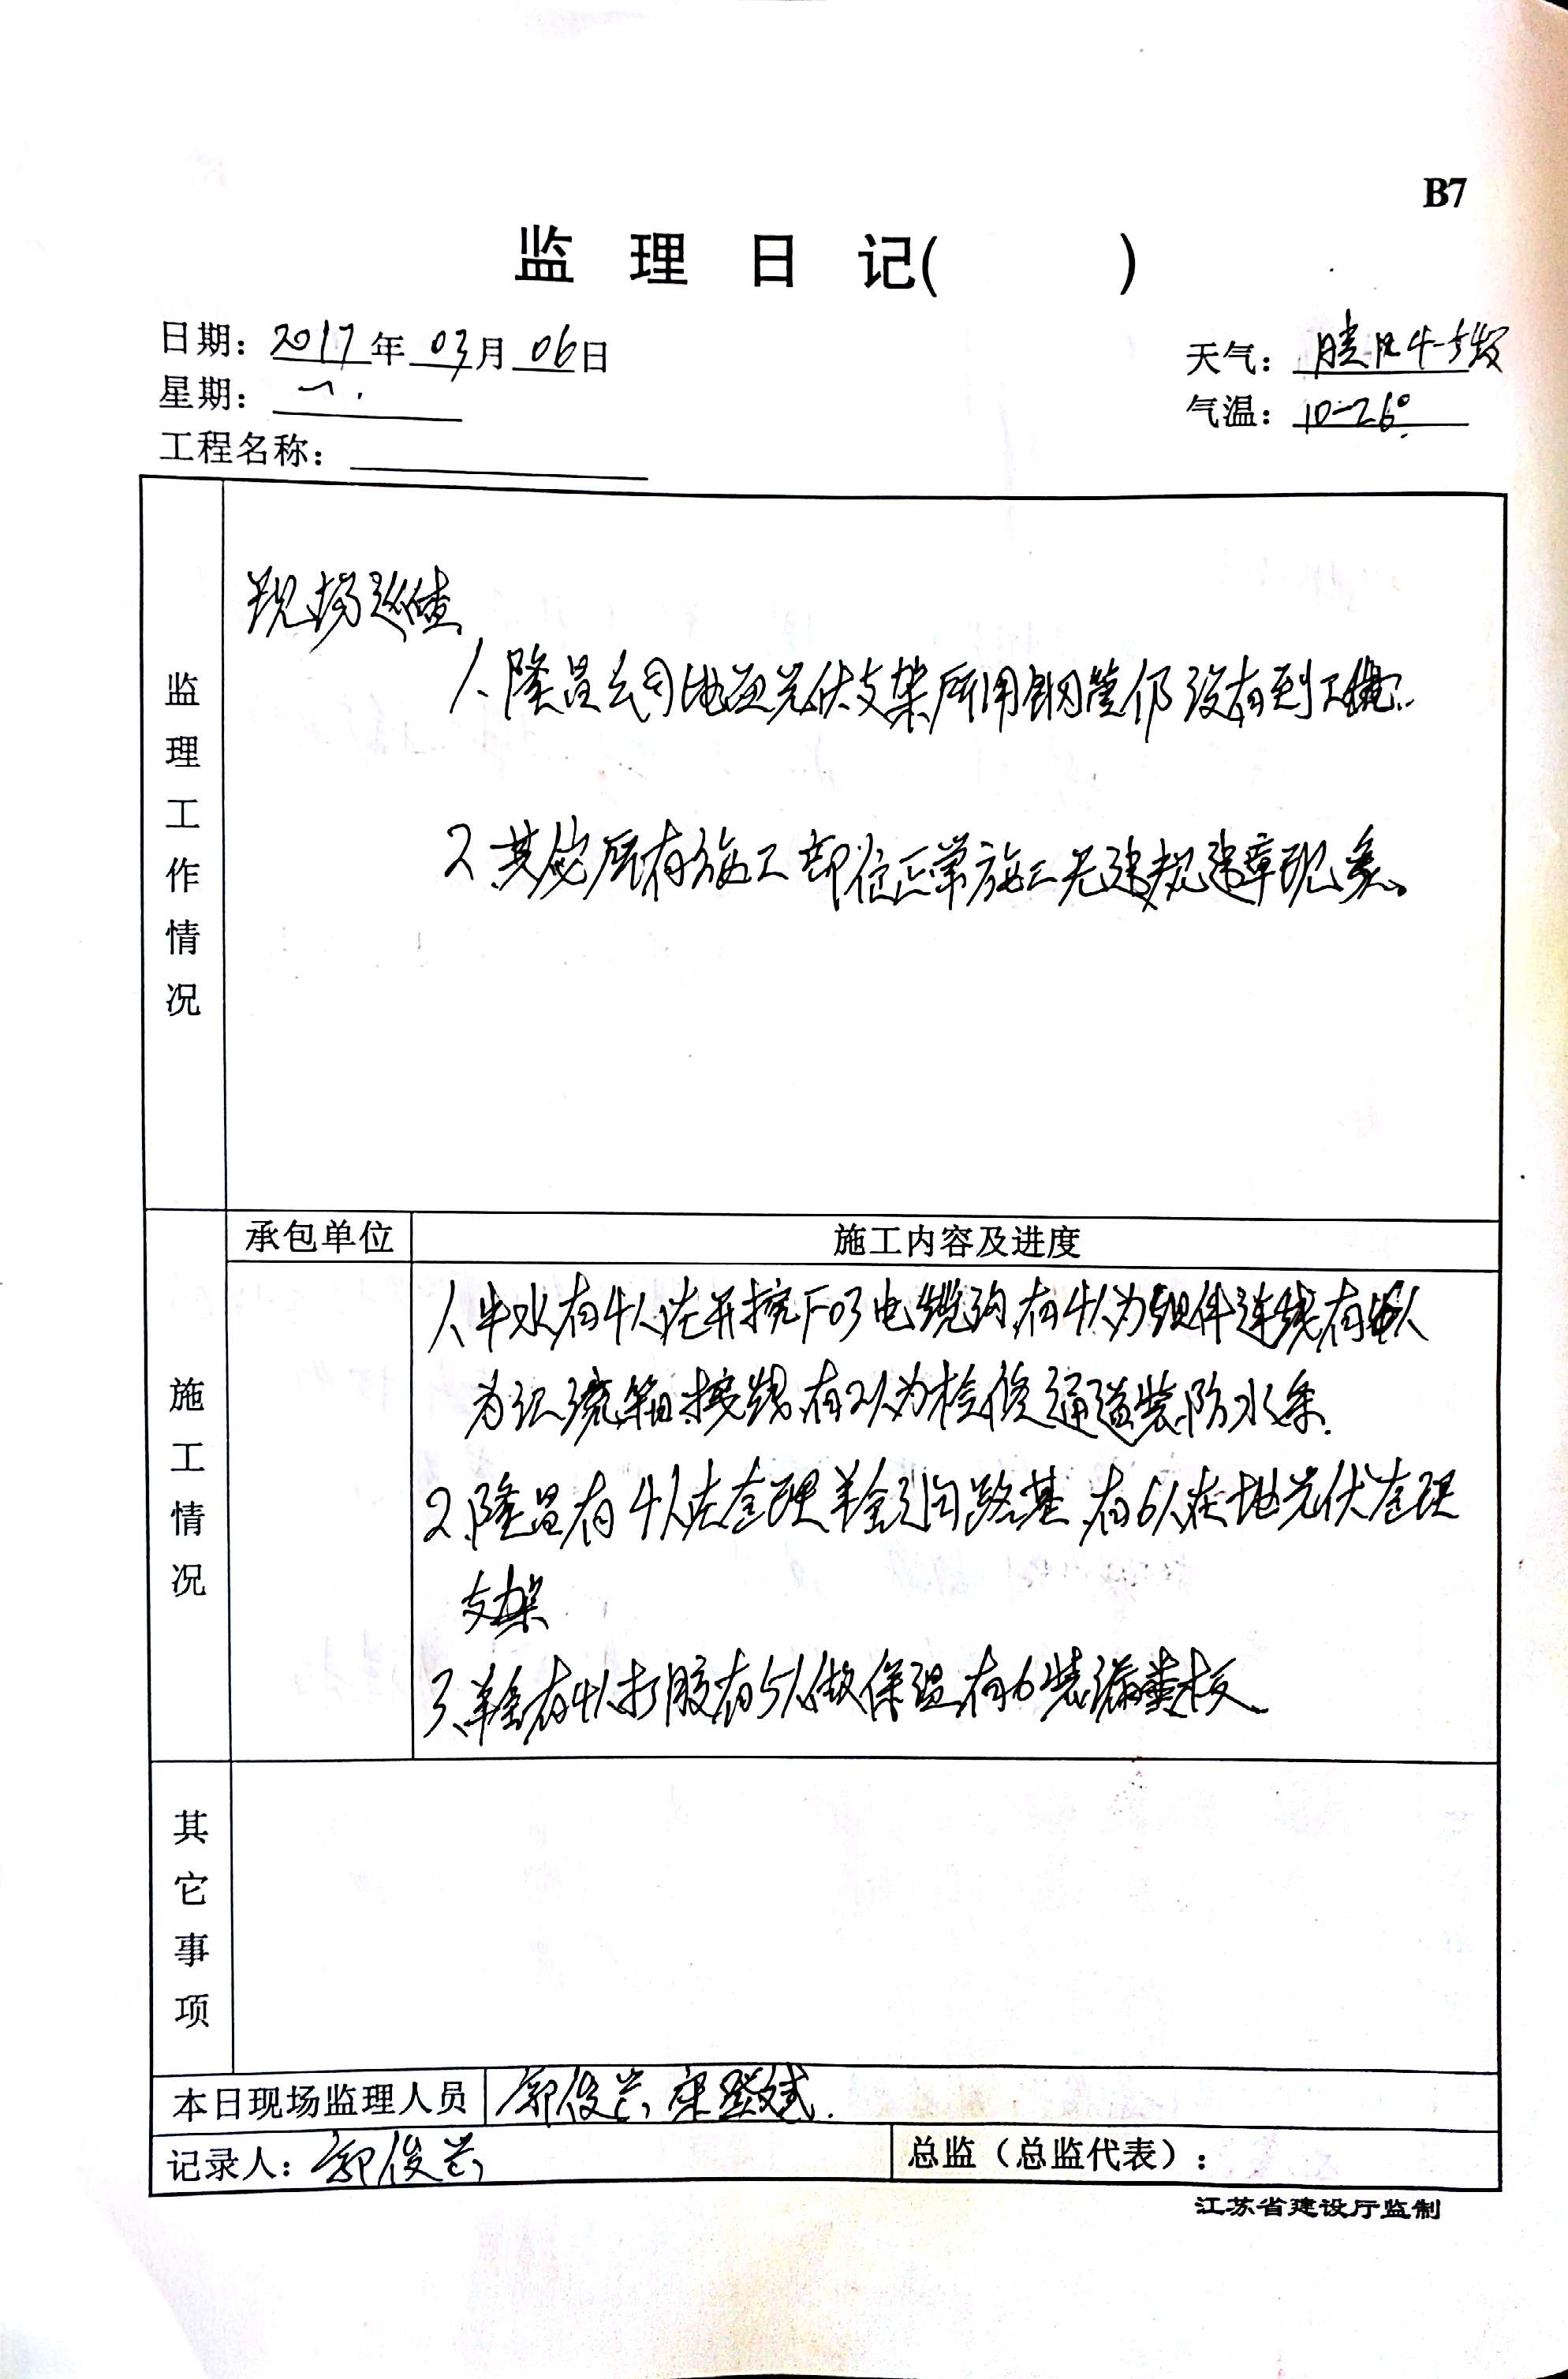 B7
监理日记( )
日期：2017年03月06日
天气：晴风4-5级
星期：一.
气温：10-26°
工程名称：
监理工作情况
现场巡查
1、隆昌公司地面光伏支架所用钢管仍没有到工地.
2、其他所有施工部位正常施工无违规违章现象。
承包单位
施工内容及进度
施工情况
1、中水有4人在开挖F03电缆沟,有4人为组件连线有人
为汇流箱接线,有2人为检修通道装防水条.
2、隆昌有4人在管理羊舍引沟路基,有6人在地光伏管理
支架
3、羊舍有4人打胶有5人做保温,有6装漏粪板
其它事项
本日现场监理人员
郭俊兰,
记录人：郭俊兰
总监（总监代表）：
江苏省建设厅监制